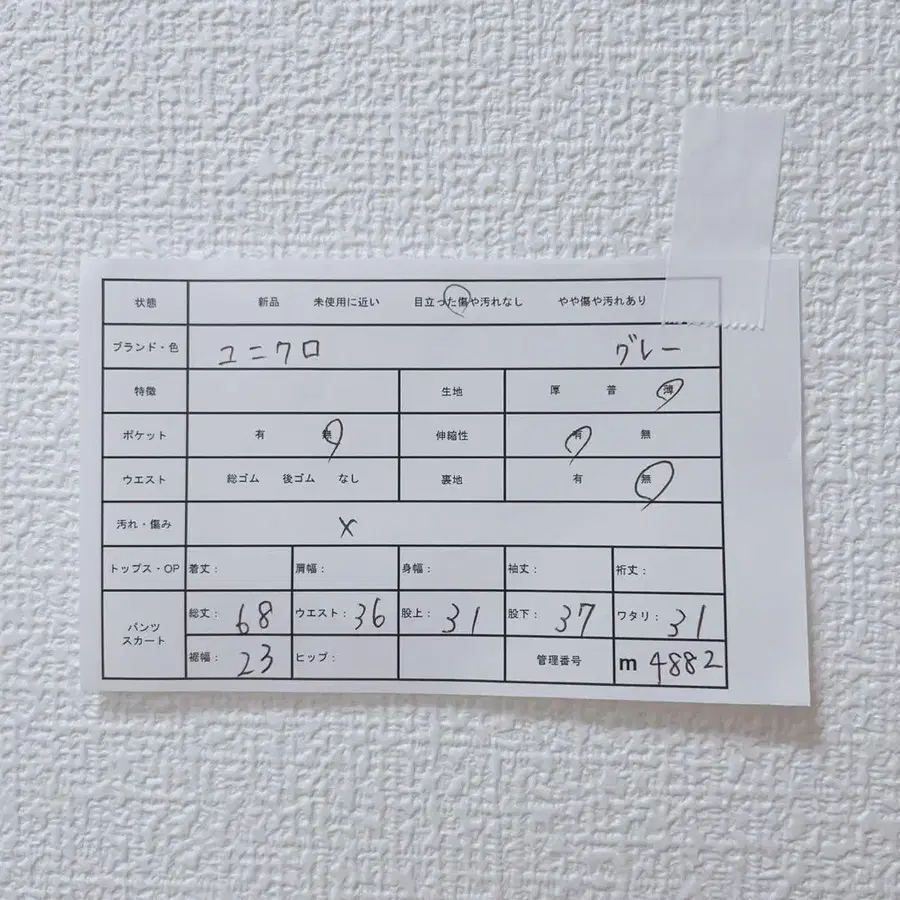 状態 新品 未使用に近い 目立った傷や汚れなし やや傷や汚れあり
ブランド・色 ユニクロ グレー
特徴 生地 厚 普 薄
ポケット 有 無 伸縮性 有 無
ウエスト 総ゴム 後ゴム なし 裏地 有 無
汚れ・傷み ×
トップス・OP 着丈: 肩幅: 身幅: 袖丈: 裄丈:
パンツ スカート 総丈: 68 ウエスト: 36 股上: 31 股下: 37 ワタリ: 31
裾幅: 23 ヒップ: 管理番号 m 4882